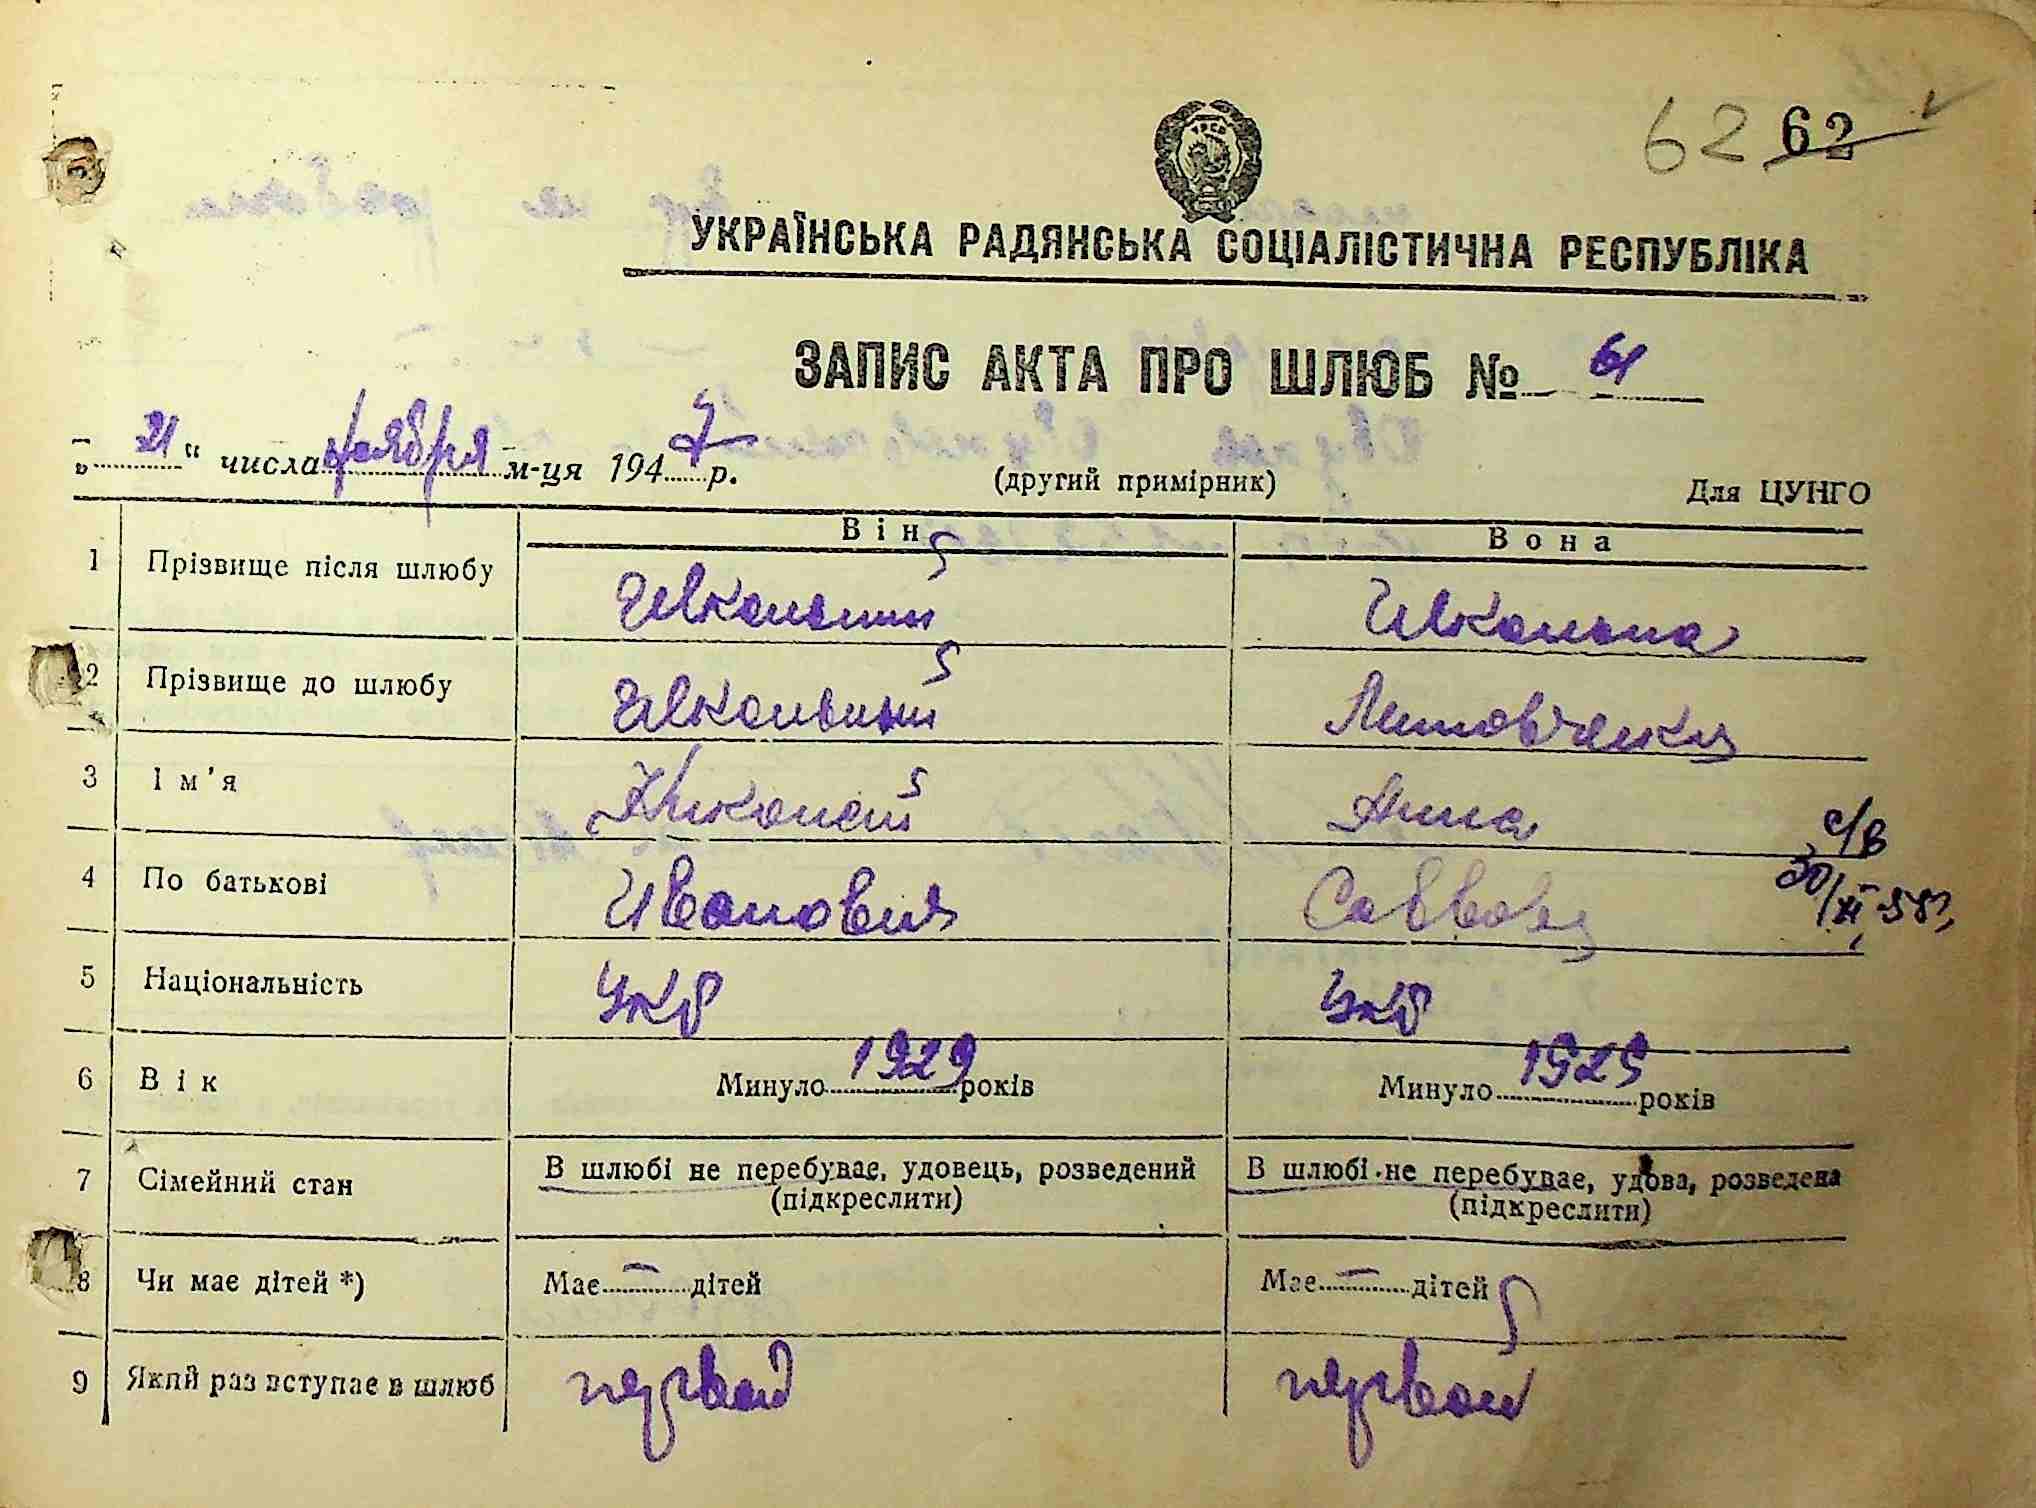 62 62
УКРАЇНСЬКА РАДЯНСЬКА СОЦІАЛІСТИЧНА РЕСПУБЛІКА
ЗАПИС АКТА ПРО ШЛЮБ № 61
„ 21 “ числа ноября м-ця 1947 р. (другий примірник) Для ЦУНГО
Він Вона
1 Прізвище після шлюбу
2 Прізвище до шлюбу Литовченко
3 Ім'я Николай Анна
с/в
4 По батькові Иванович Саввовна
30/XI-58
5 Національність Укр Укр
6 Вік Минуло 1929 років Минуло 1925 років
7 Сімейний стан В шлюбі не перебуває, удовець, розведений В шлюбі не перебуває, удова, розведена
(підкреслити) (підкреслити)
8 Чи має дітей *) Має — дітей Має — дітей
9 Який раз вступає в шлюб первый первый